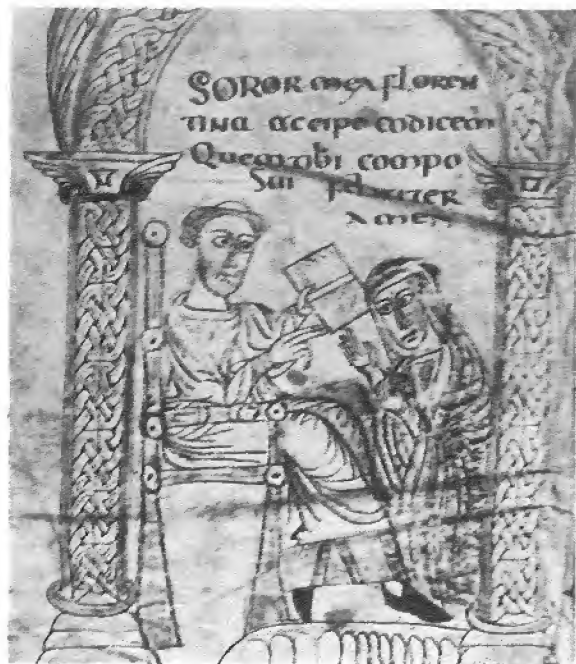 SOROR mea floren
tina accipe codicem
Quem tibi compo
Sui feliciter
AMEN